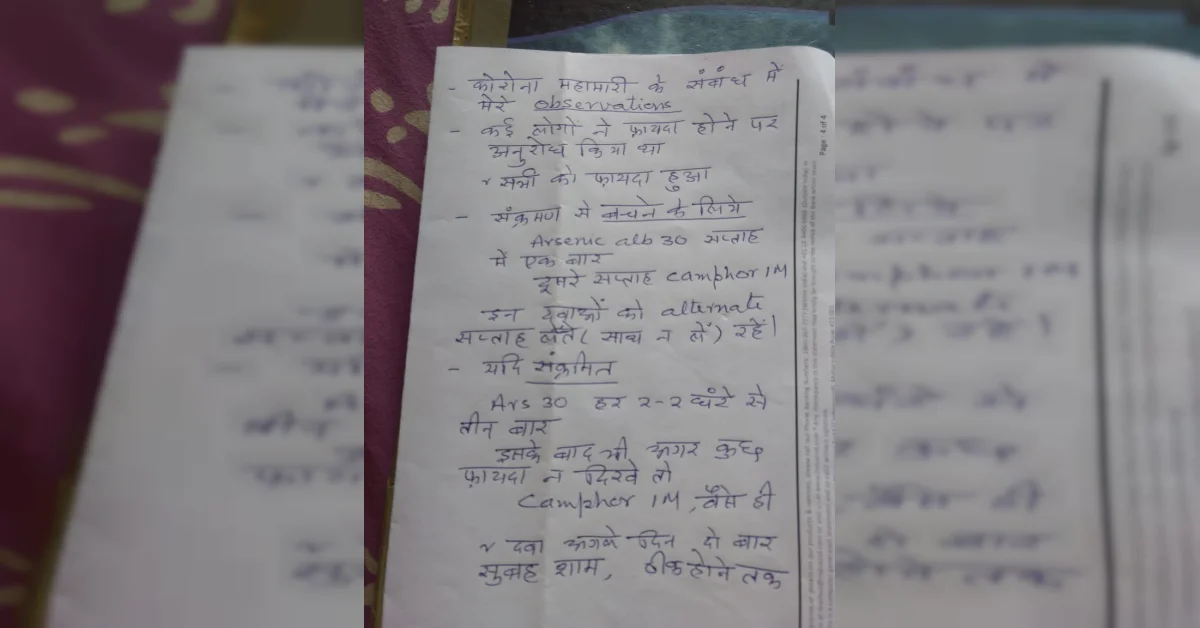 - कोरोना महामारी के संबंध में
मेरे observations
- कई लोगों ने फ़ायदा होने पर
अनुरोध किया था
r सभी को फ़ायदा हुआ
- संक्रमण से बचने के लिये
Arsenic alb 30 सप्ताह
में एक बार
दूसरे सप्ताह camphor 1M
इन दवाओं को alternate
सप्ताह लेते ( साथ न लें ) रहें।
- यदि संक्रमित
Ars 30 हर २-२ घंटे से
तीन बार
इसके बाद भी अगर कुछ
फ़ायदा न दिखे तो
Camphor 1M, वैसे ही
r दवा अगले दिन दो बार
सुबह शाम, ठीक होने तक
Page : 4 of 4